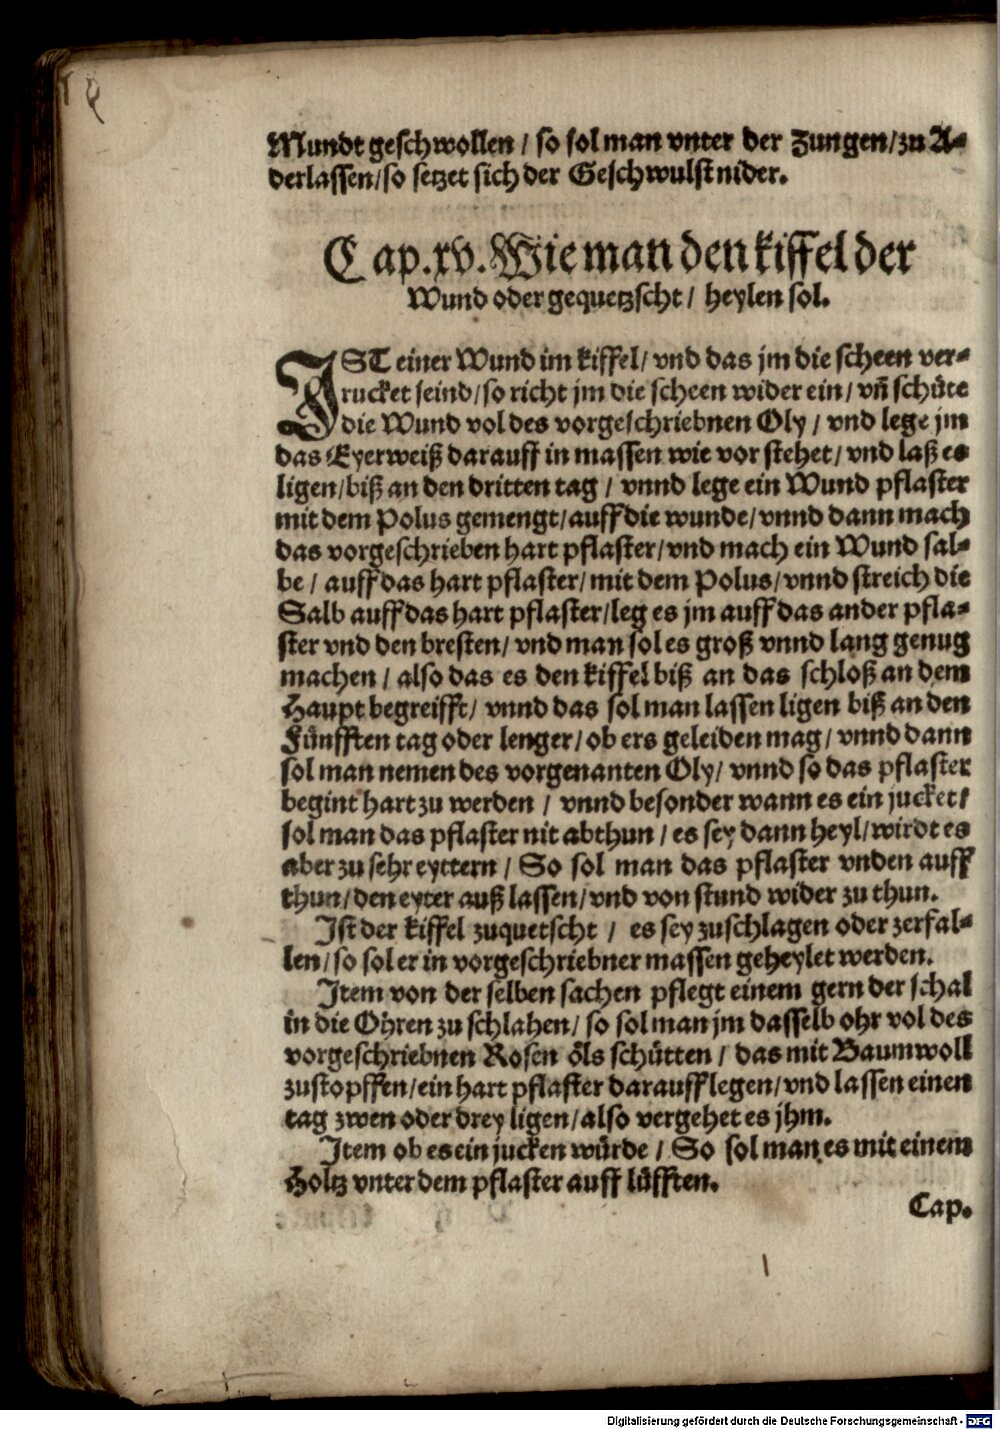 Mundt geschwollen / so sol man vnter der Zungen / zu A-
derlassen / so setzet sich der Geschwulst nider.
Cap. xv. Wie man den kiffel der
Wund oder gequetzscht / heylen sol.
IST einer Wund im kiffel / vnd das jm die scheen ver-
rucket seind / so richt jm die scheen wider ein / vñ schüte
die Wund vol des vorgeschriebnen Oly / vnd lege jm
das Eyerweiß darauff in massen wie vor stehet / vnd laß es
ligen / biß an den dritten tag / vnnd lege ein Wund pflaster
mit dem Polus gemengt / auff die wunde / vnnd dann mach
das vorgeschrieben hart pflaster / vnd mach ein Wund sal-
be / auff das hart pflaster / mit dem Polus / vnnd streich die
Salb auff das hart pflaster / leg es jm auff das ander pfla-
ster vnd den bresten / vnd man sol es groß vnnd lang genug
machen / also das es den kiffel biß an das schloß an dem
Haupt begreifft / vnnd das sol man lassen ligen biß an den
Fünfften tag oder lenger / ob ers geleiden mag / vnnd dann
sol man nemen des vorgenanten Oly / vnnd so das pflaster
begint hart zu werden / vnnd besonder wann es ein jucket /
sol man das pflaster nit abthun / es sey dann heyl / wirdt es
aber zu sehr eyttern / So sol man das pflaster vnden auff
thun / den eyter auß lassen / vnd von stund wider zu thun.
Ist der kiffel zuquetscht / es sey zuschlagen oder zerfal-
len / so sol er in vorgeschriebner massen geheylet werden.
Item von der selben sachen pflegt einem gern der schal
in die Ohren zu schlahen / so sol man jm dasselb ohr vol des
vorgeschriebnen Rosen öls schütten / das mit Baumwoll
zustopffen / ein hart pflaster darauff legen / vnd lassen einen
tag zwen oder drey ligen / also vergehet es jhm.
Item ob es ein jucken würde / So sol man es mit einem
Holtz vnter dem pflaster auff lüfften.
Cap.
Digitalisierung gefördert durch die Deutsche Forschungsgemeinschaft - DFG